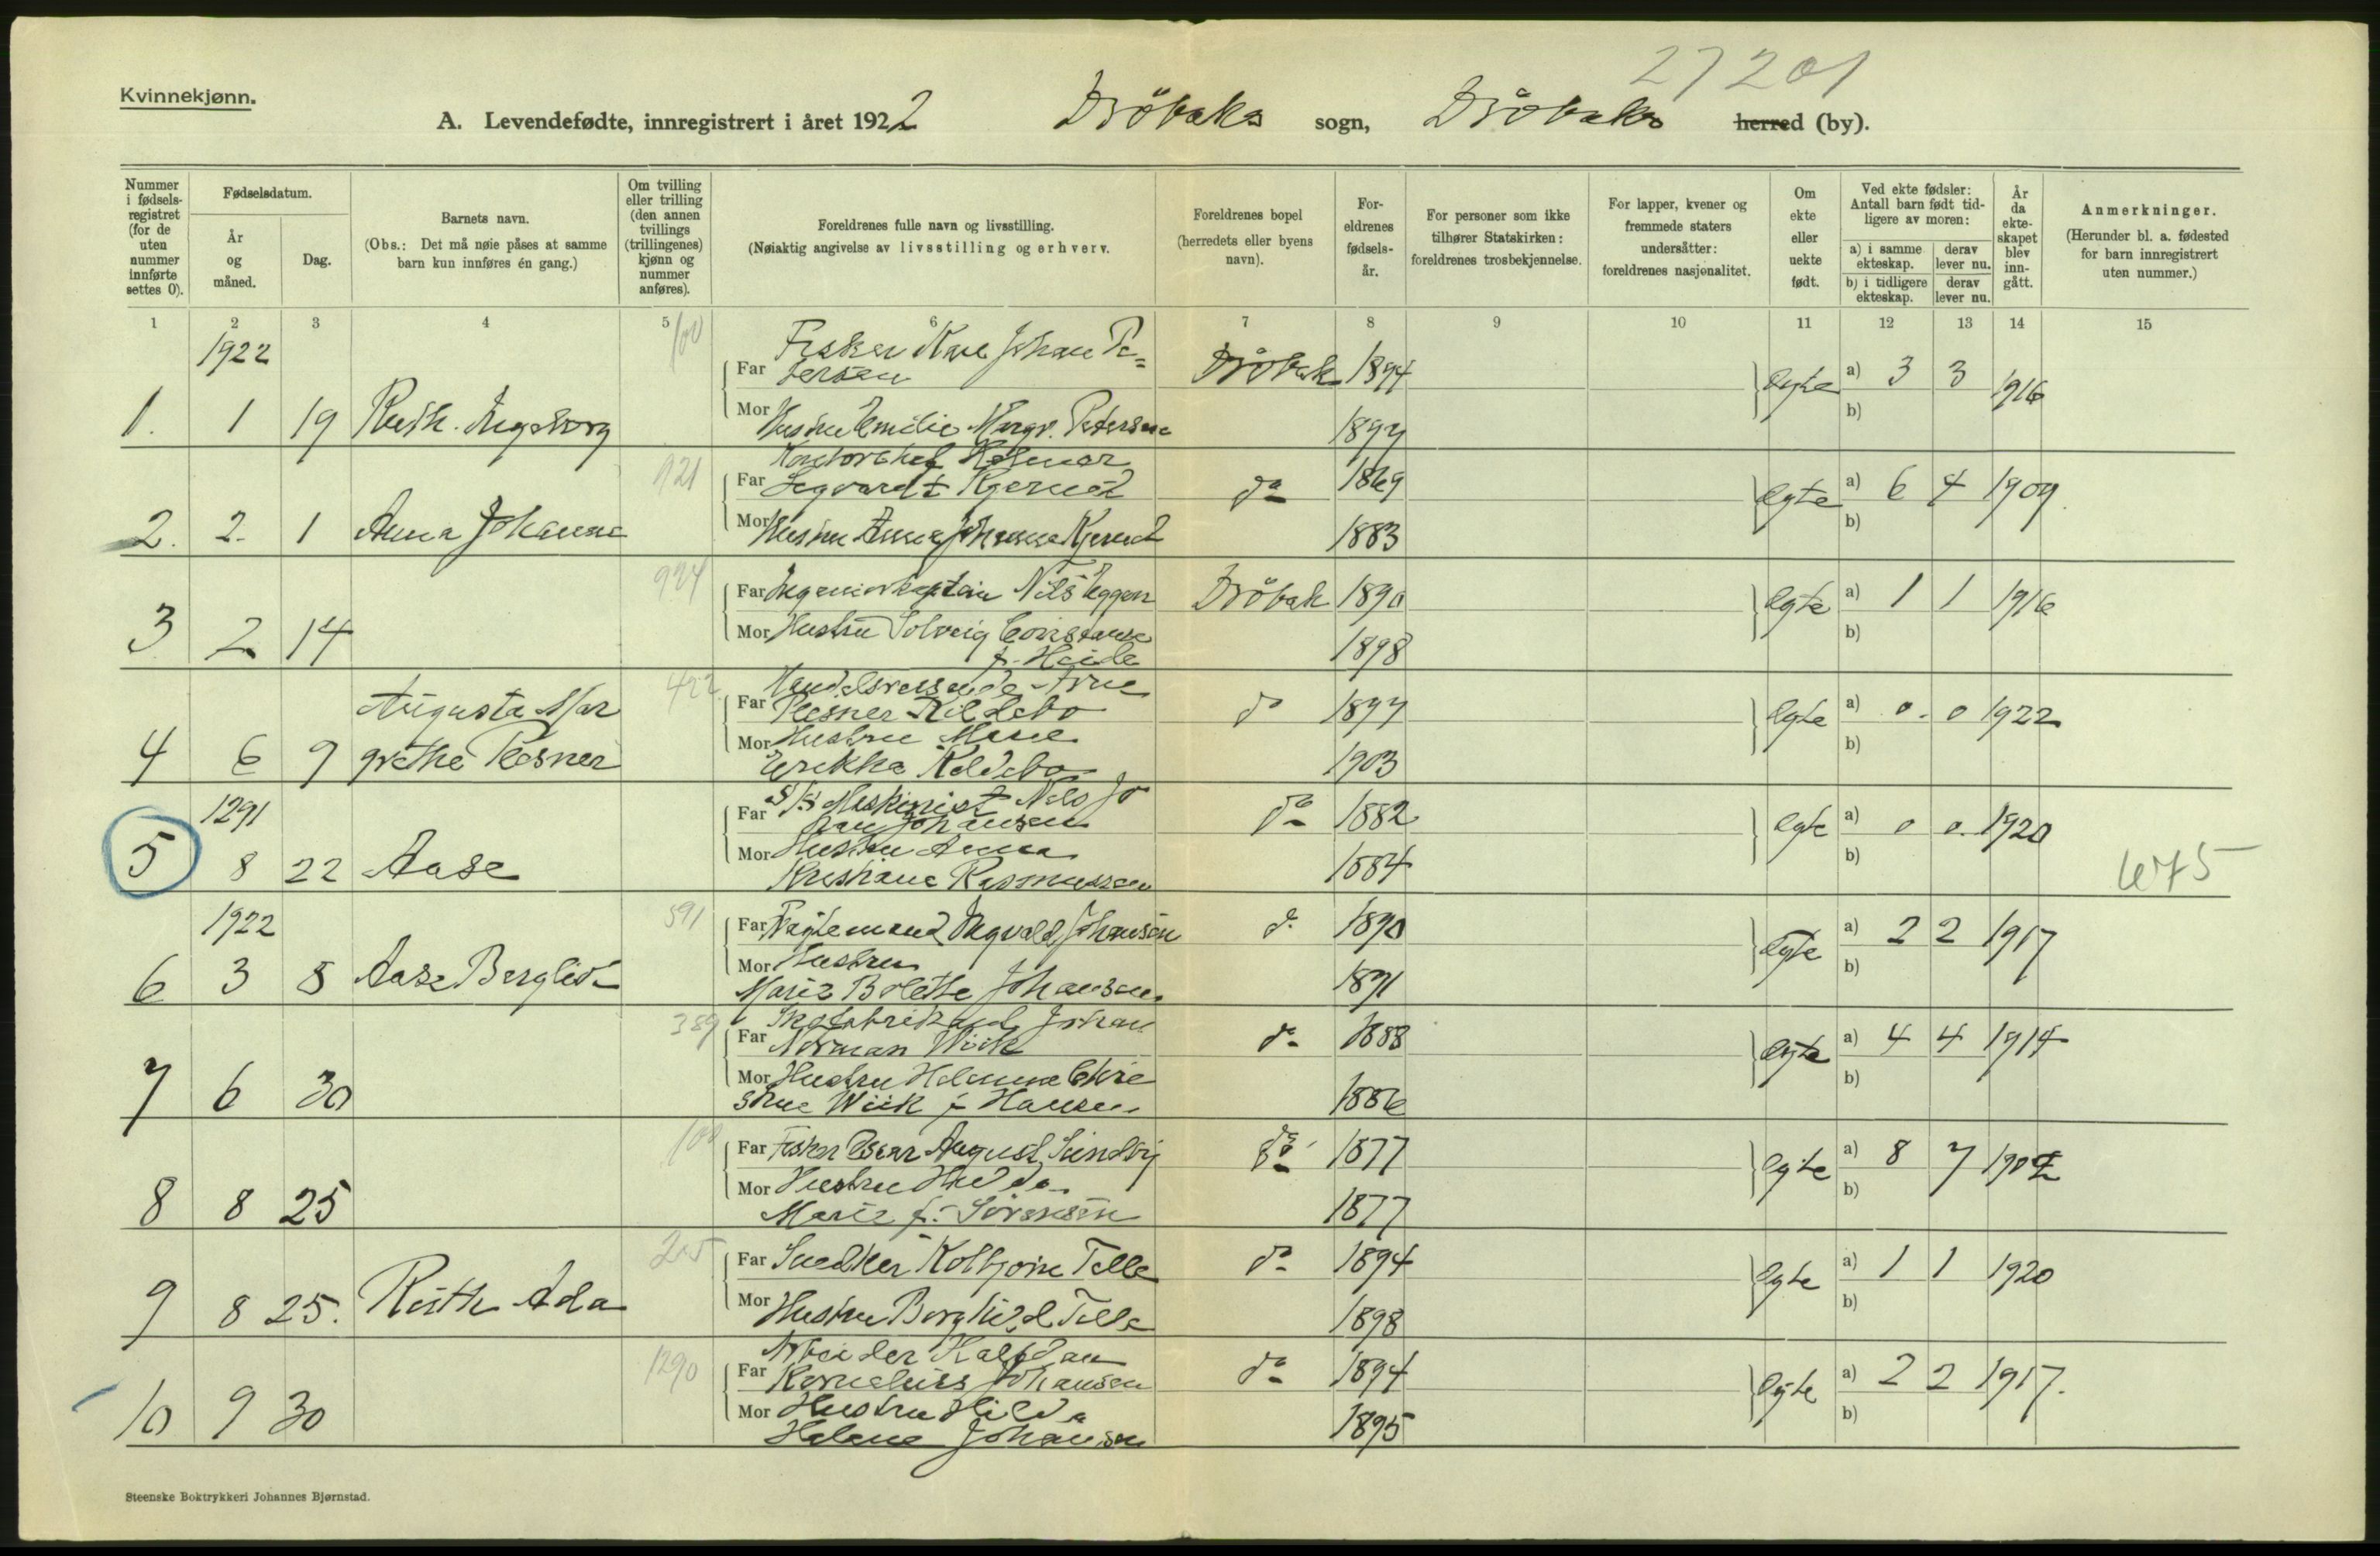 27201
Kvinnekjønn.
A. Levendefødte, innregistrert i året 1922 Dröbaks sogn, Dröbaks herred (by).
Nummer i fødselsregistret (for de uten nummer innførte settes 0).
Fødselsdatum.
År og måned.
Dag.
Barnets navn.
(Obs.: Det må nøie påses at samme barn kun innføres én gang.)
Om tvilling eller trilling (den annen tvillings (trillingenes) kjønn og nummer anføres).
Foreldrenes fulle navn og livsstilling.
(Nøiaktig angivelse av livsstilling og erhverv.
Foreldrenes bopel (herredets eller byens navn).
Foreldrenes fødselsår.
For personer som ikke tilhører Statskirken: foreldrenes trosbekjennelse.
For lapper, kvener og fremmede staters undersåtter: foreldrenes nasjonalitet.
Om ekte eller uekte født.
Ved ekte fødsler: Antall barn født tidligere av moren:
a) i samme ekteskap. derav lever nu.
b) i tidligere ekteskap. derav lever nu.
År da ekteskapet blev inngått.
Anmerkninger.
(Herunder bl. a. fødested for barn innregistrert uten nummer.)
1 2 3 4 5 6 7 8 9 10 11 12 13 14 15
1922
100
Fisker Karl Johan Pe=
Far tersen Dröbak 1894 Egte a) 3 3 1916
1. 1 19 Ruth Ingeborg
Mor Hustru Emilie Margr. Petersen 1897 b)
921
Kontorchef Helmer
Far Segvardt Kjerulf do 1869 Egte a) 6 4 1909
2. 2. 1 Anna Johanne
Mor Hustru Anna Johanne Kjerulf 1883 b)
924
Far Ingeniorkaptein Nils Eggen Dröbak 1890 Egte a) 1 1 1916
3 2 14
Mor Hustru Solveig Constanse 1898 b)
f. Heide
422
Handelsreisende Arne
Far Plesner Kildebo do 1897 Egte a) 0. 0 1922
Augusta Mar
4 6 9 grethe Plesner
Mor Hustru Marie b)
Erikka Kildebo 1903
1291
S/S Maskinist Nils Jo
Far han Johansen do 1882 Egte a) 0 0. 1920
5 8 22 Aase
Mor Hustru Anna b)
Kristiane Rasmussen 1884
6475
1922
591
Far Ingvald Johansen do 1890 Egte a) 2 2 1917
6 3 8 Aase Bergliot
Mor Hustru b)
Marie Bolette Johansen 1891
389
Skofabrikant Johan
Far Norman Wiik do 1888 Egte a) 4 4 1914
7 6 30
Mor Hustru Helenne Chri b)
stine Wiik f. Hansen 1886
100
Far Fisker Oscar August Sundby do 1877 Egte a) 8 7
8 8 25
Mor Hustru Hulda b)
Marie f. Sörensen 1877
205
Far Snedker Kolbjörn Telle do 1894 Egte a) 1 1 1920
9 8 25. Ruth Ada
Mor Hustru Borghild Telle 1898 b)
1290
Arbeider Halfdan
Far Kornelius Johansen do 1894 Egte a) 2 2 1917.
10 9 30
Mor Hustru Hilda b)
Helene Johansen 1895
Steenske Boktrykkeri Johannes Bjørnstad.